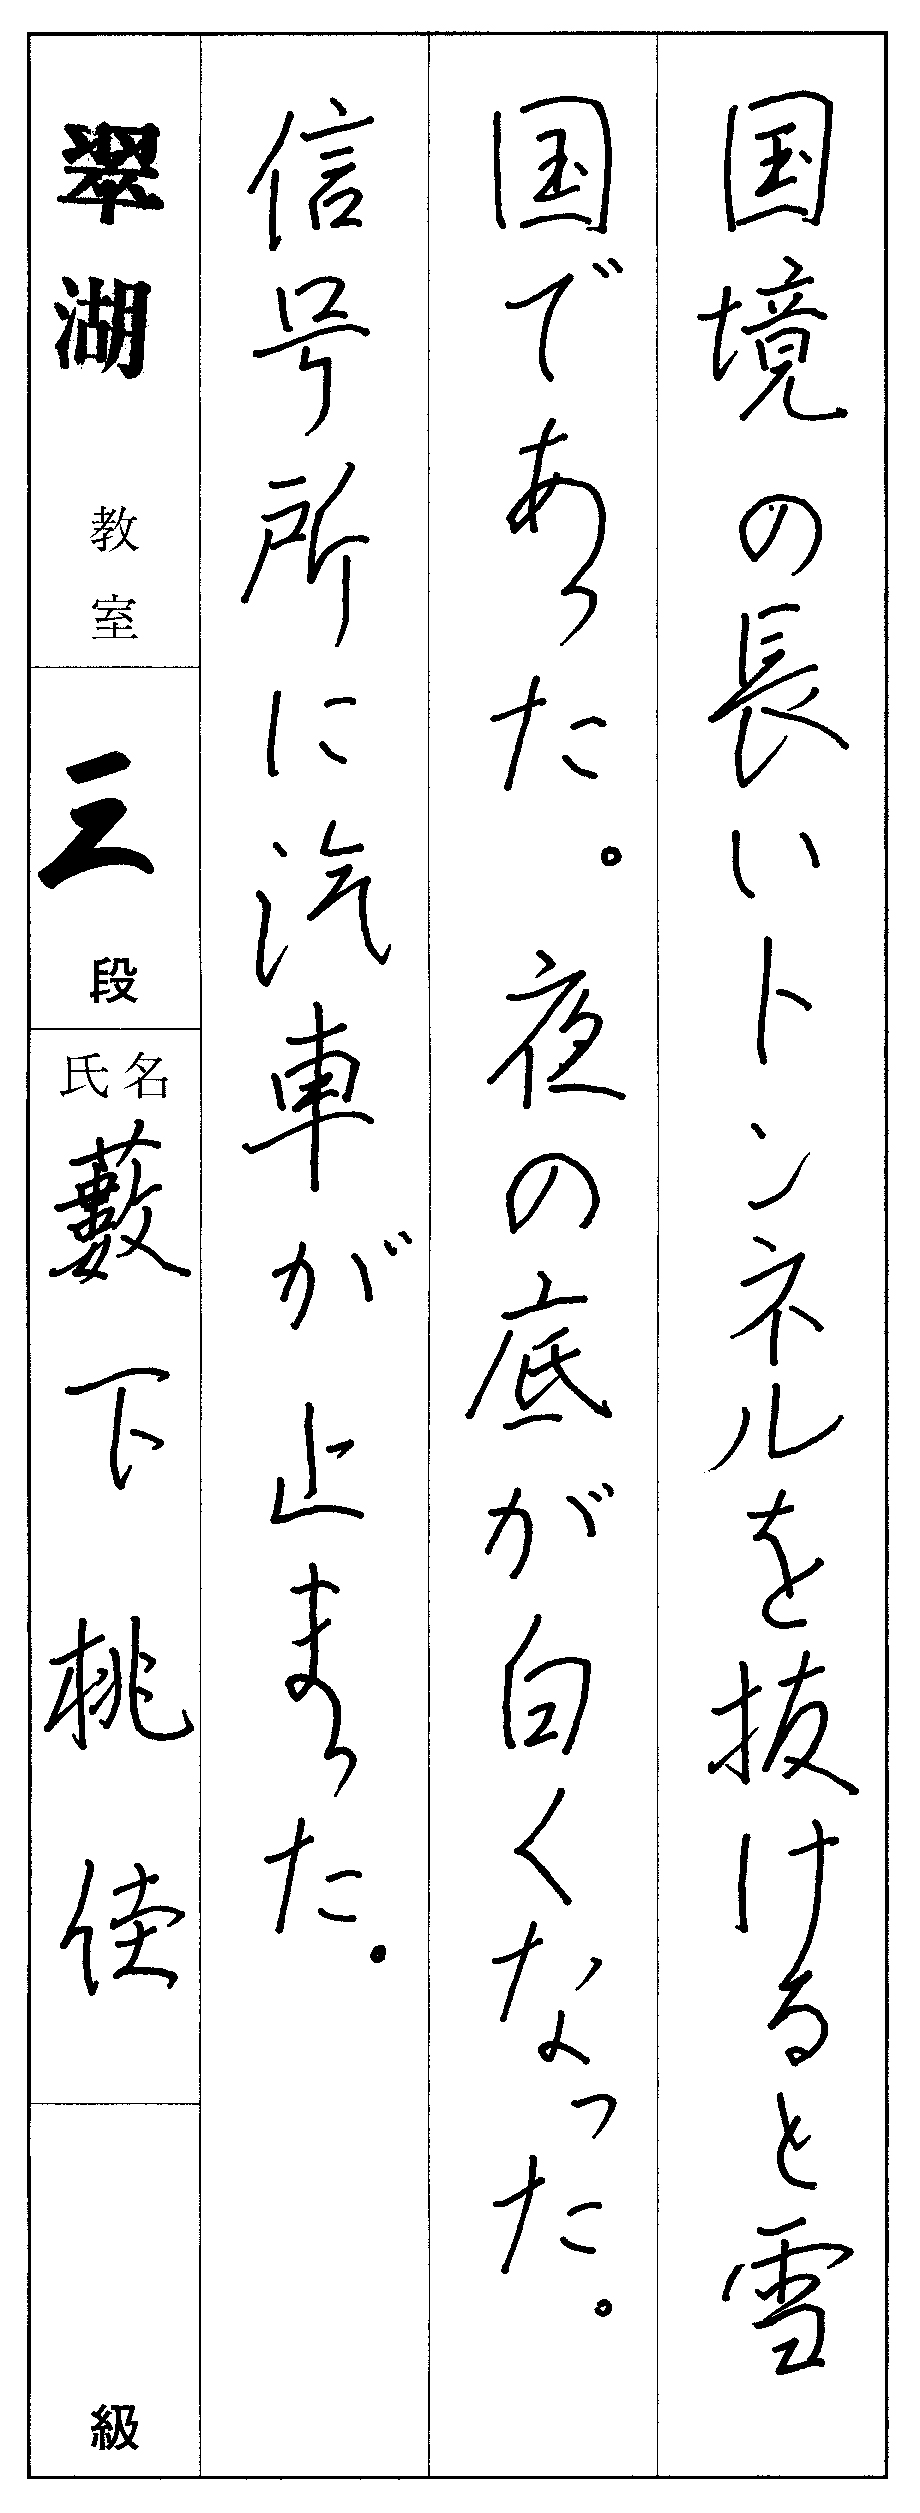 国境の長いトンネルを抜けると雪
国であった。夜の底が白くなった。
信号所に汽車が止まった。
翠湖教室
三段
氏名
藪下桃佳
級